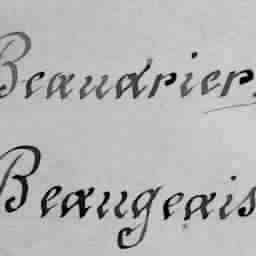 Beaudrier.
Beaugeais